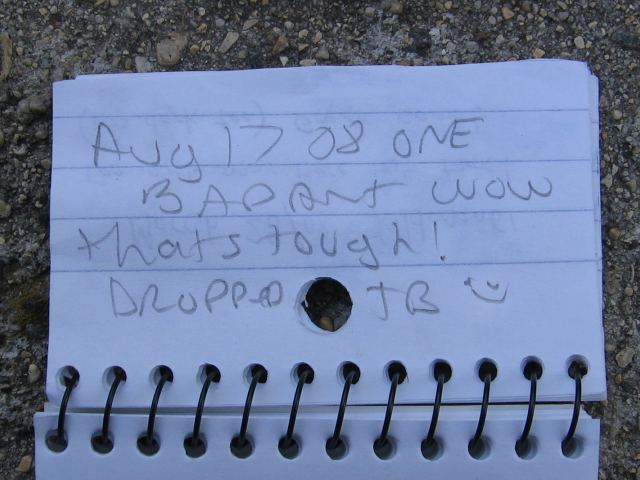 Aug 17 08 ONE
BAD ANt WOW
thats tough!
DROPPED JB